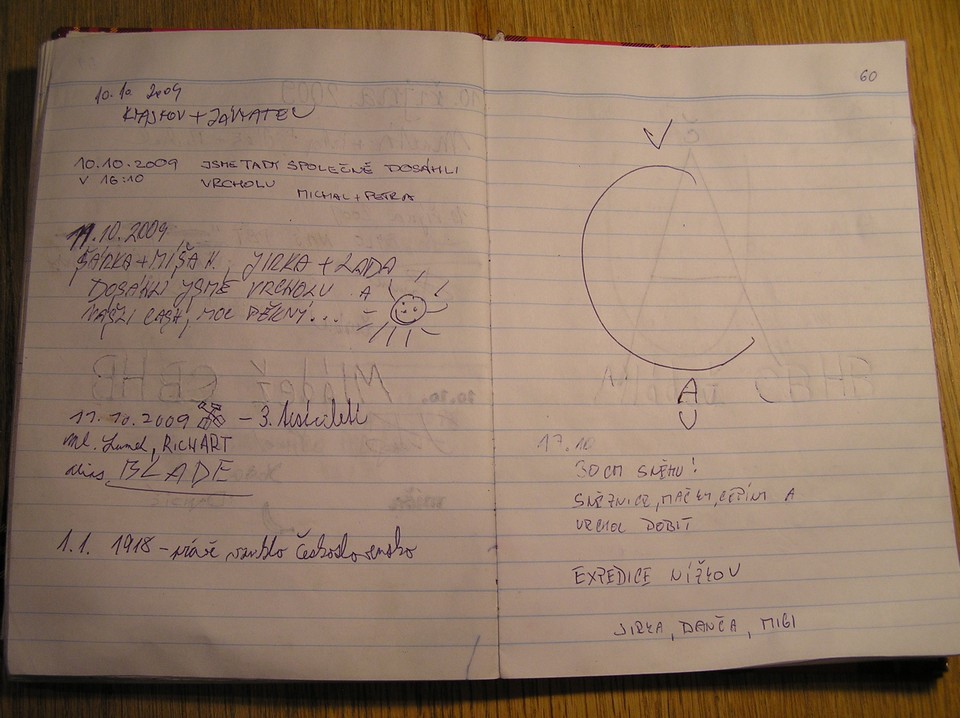 10.10.2009
10.10.2009 JSME TADY SPOLEČNĚ DOSÁHLI
V 16:10 VRCHOLU
MICHAL + PETRA
11.10.2009
ŠÁRKA + MÍŠA H., JIRKA + LADA
DOSÁHLI JSME VRCHOLU A
NAŠLI CASH, MOC PĚKNÝ...
11.10.2009 – 3.
RICHART
BLADE
1.1. 1918 – právě vzniklo Československo
60
V
A
U
17.10
30 CM SNĚHU!
SNĚŽNICE, MAČKY, CEPÍNY A
VRCHOL DOBIT
EXPEDICE NÍŽKOV
JIRKA, DANČA, MIGI